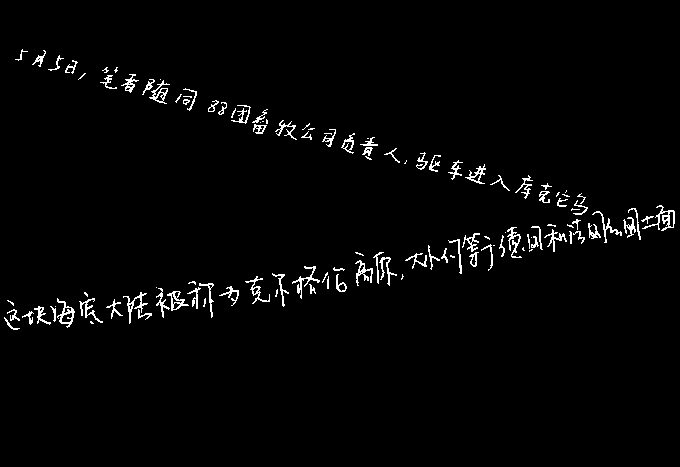 5月5日,笔者随同88团畜牧公司负责人,驱车进入库克它乌
这块海底大陆被称为克尔格伦高原,大小何等于德国和法国的国土面